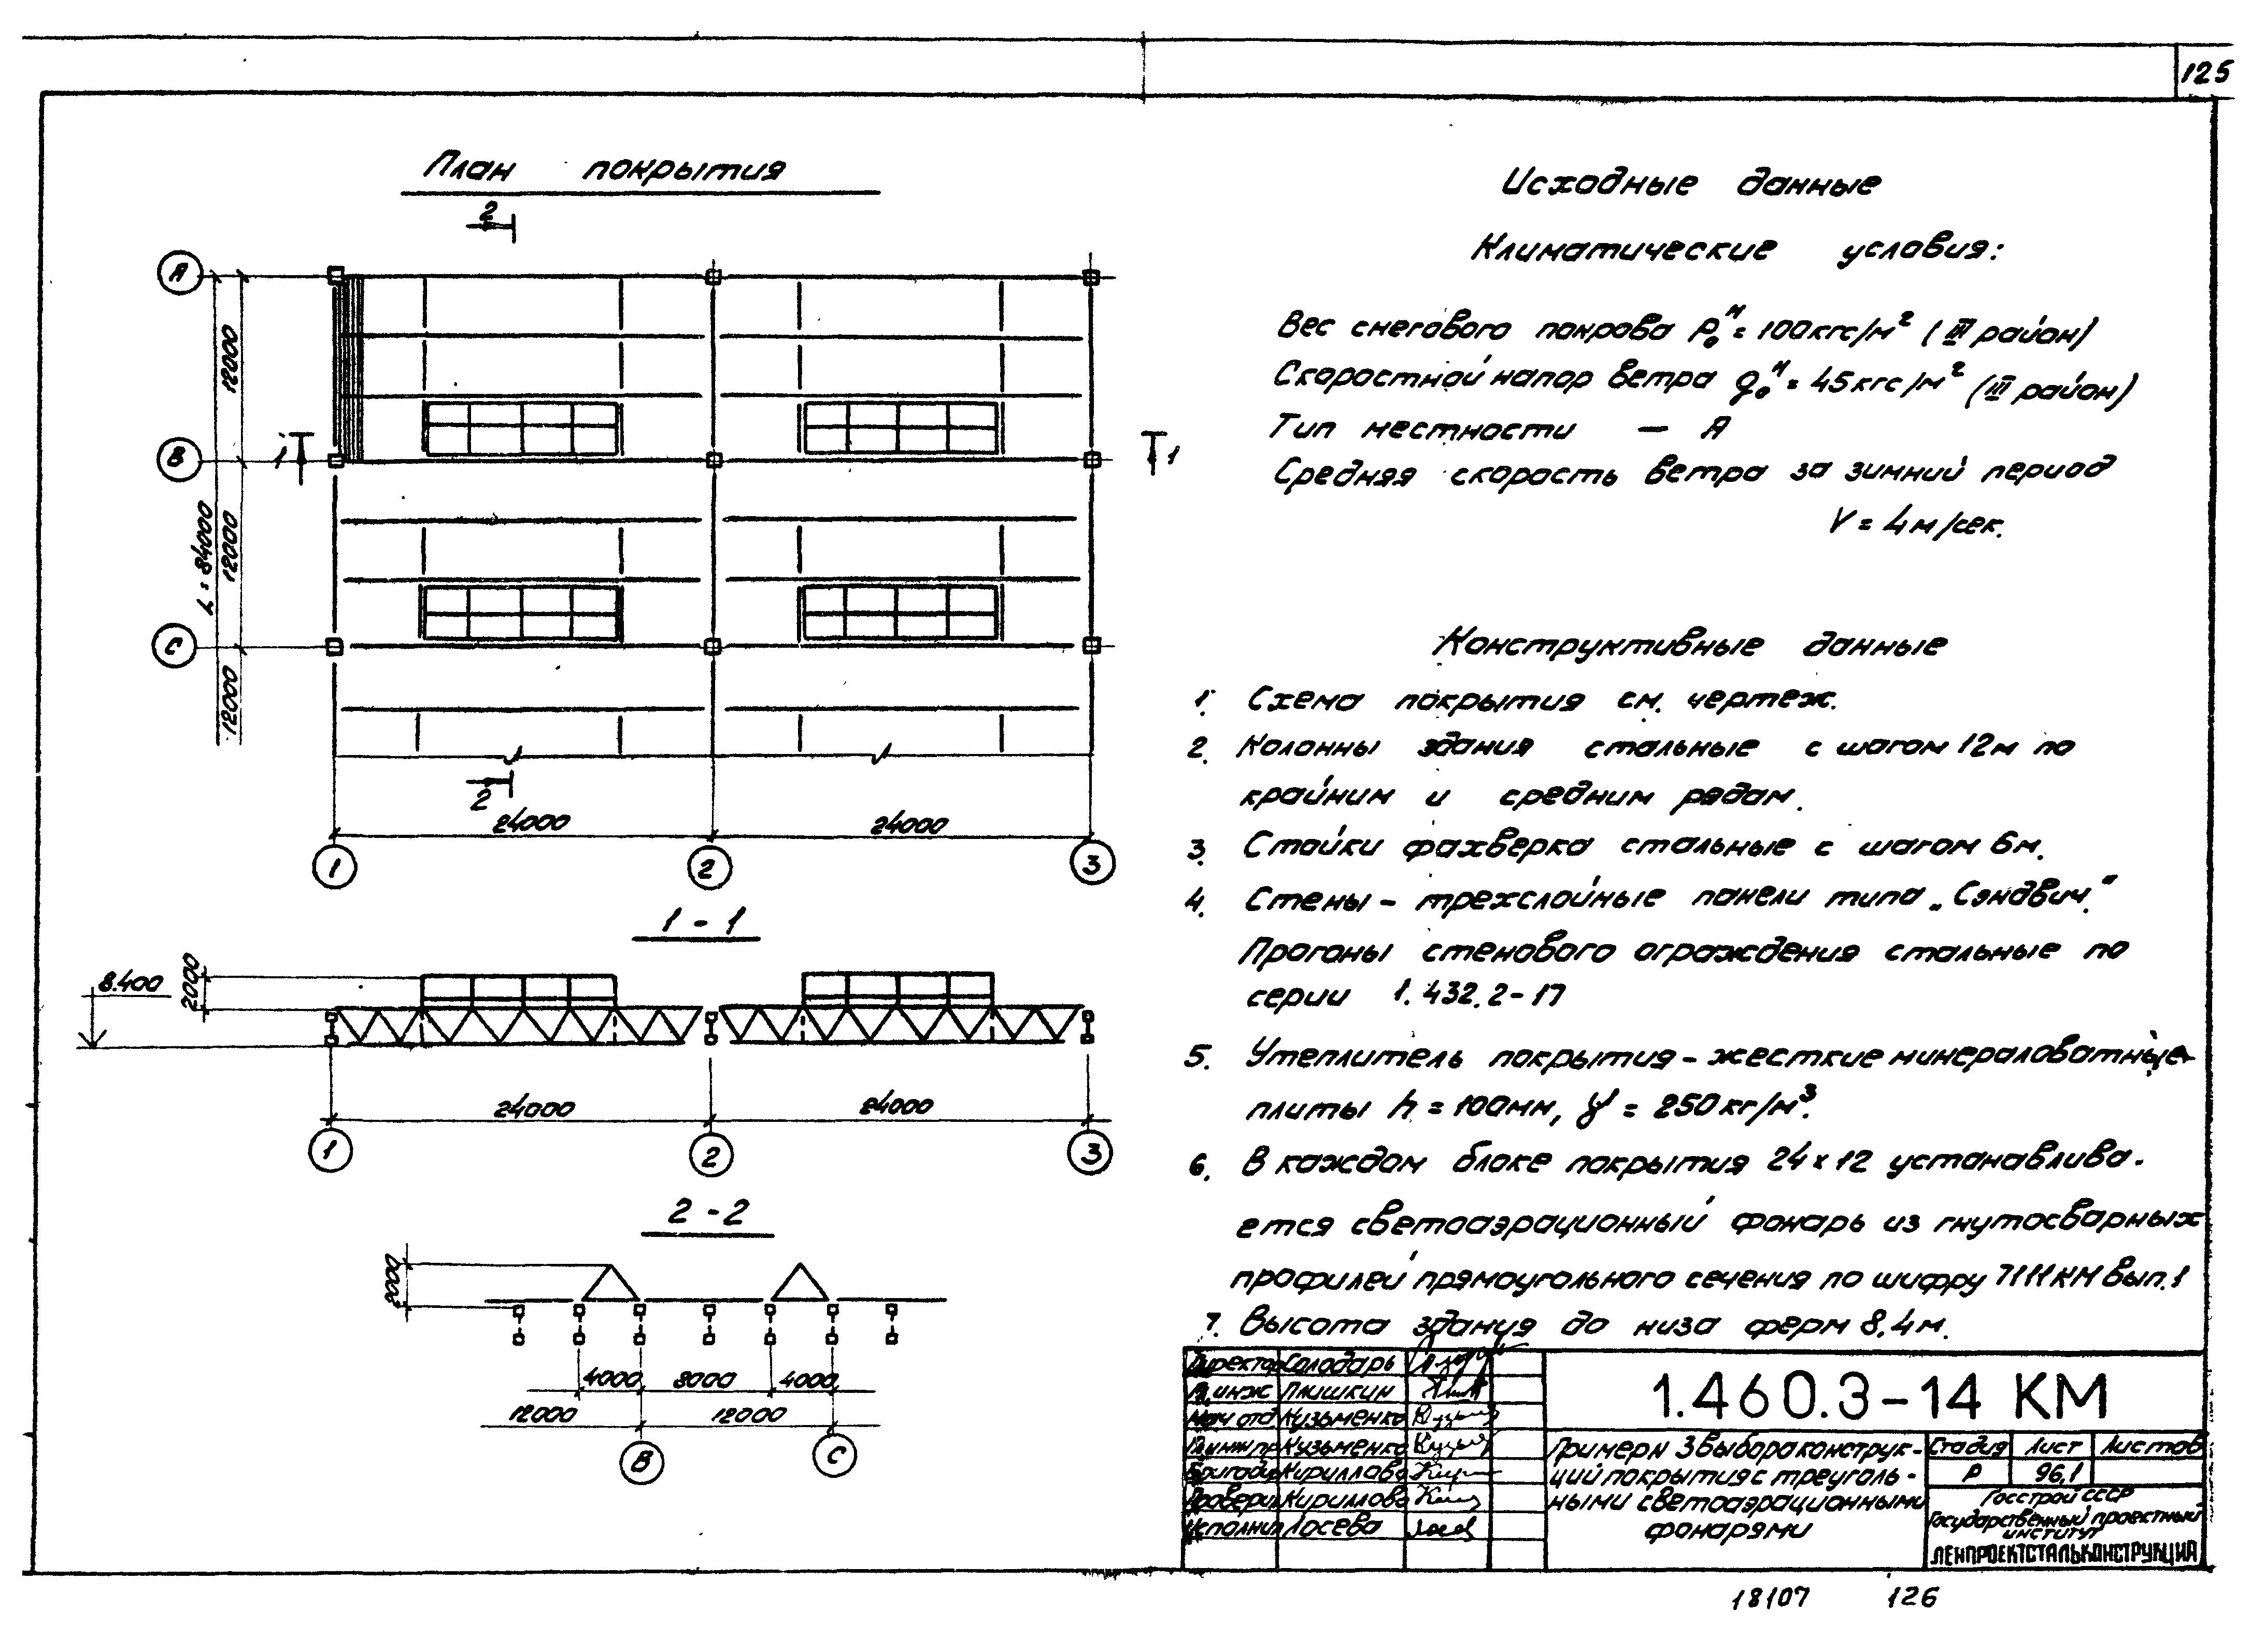 125
План покрытия
2
А
В
С
12000
12000
12000
L = 84000
1
1
2
24000
24000
1
2
3
1 - 1
8.400
2000
24000
24000
1
2
3
2 - 2
2000
4000
8000
4000
12000
12000
В
С
Исходные данные
Климатические условия:
Вес снегового покрова P₀ᴴ = 100кгс/м² (III район)
Скоростной напор ветра q₀ᴴ = 45кгс/м² (III район)
Тип местности — А
Средняя скорость ветра за зимний период
V = 4м/сек.
Конструктивные данные
1. Схема покрытия см. чертеж.
2. Колонны здания стальные с шагом 12м по
крайним и средним рядам.
3. Стойки фахверка стальные с шагом 6м.
4. Стены - трехслойные панели типа „Сэндвич".
Прогоны стенового ограждения стальные по
серии 1.432.2-17
5. Утеплитель покрытия - жесткие минераловатные
плиты h = 100мм, γ = 250кг/м³.
6. В каждом блоке покрытия 24×12 устанавлива-
ется светоаэрационный фонарь из гнутосварных
профилей прямоугольного сечения по шифру 7111КМ вып.1
7. Высота здания до низа ферм 8,4м.
Директор Солодарь
Гл.инж Плишкин
Нач отд Кузьменко
Гл.инж пр Кузьменко
Бригадир Кириллова
Проверил Кириллова
Исполнил Лосева
1.460.3-14 КМ
Пример 3 выбора конструк-
ций покрытия с треуголь-
ными светоаэрационными
фонарями
Стадия Лист Листов
Р 96,1
Госстрой СССР
Государственный проектный
институт
ЛЕНПРОЕКТСТАЛЬКОНСТРУКЦИЯ
18107 126